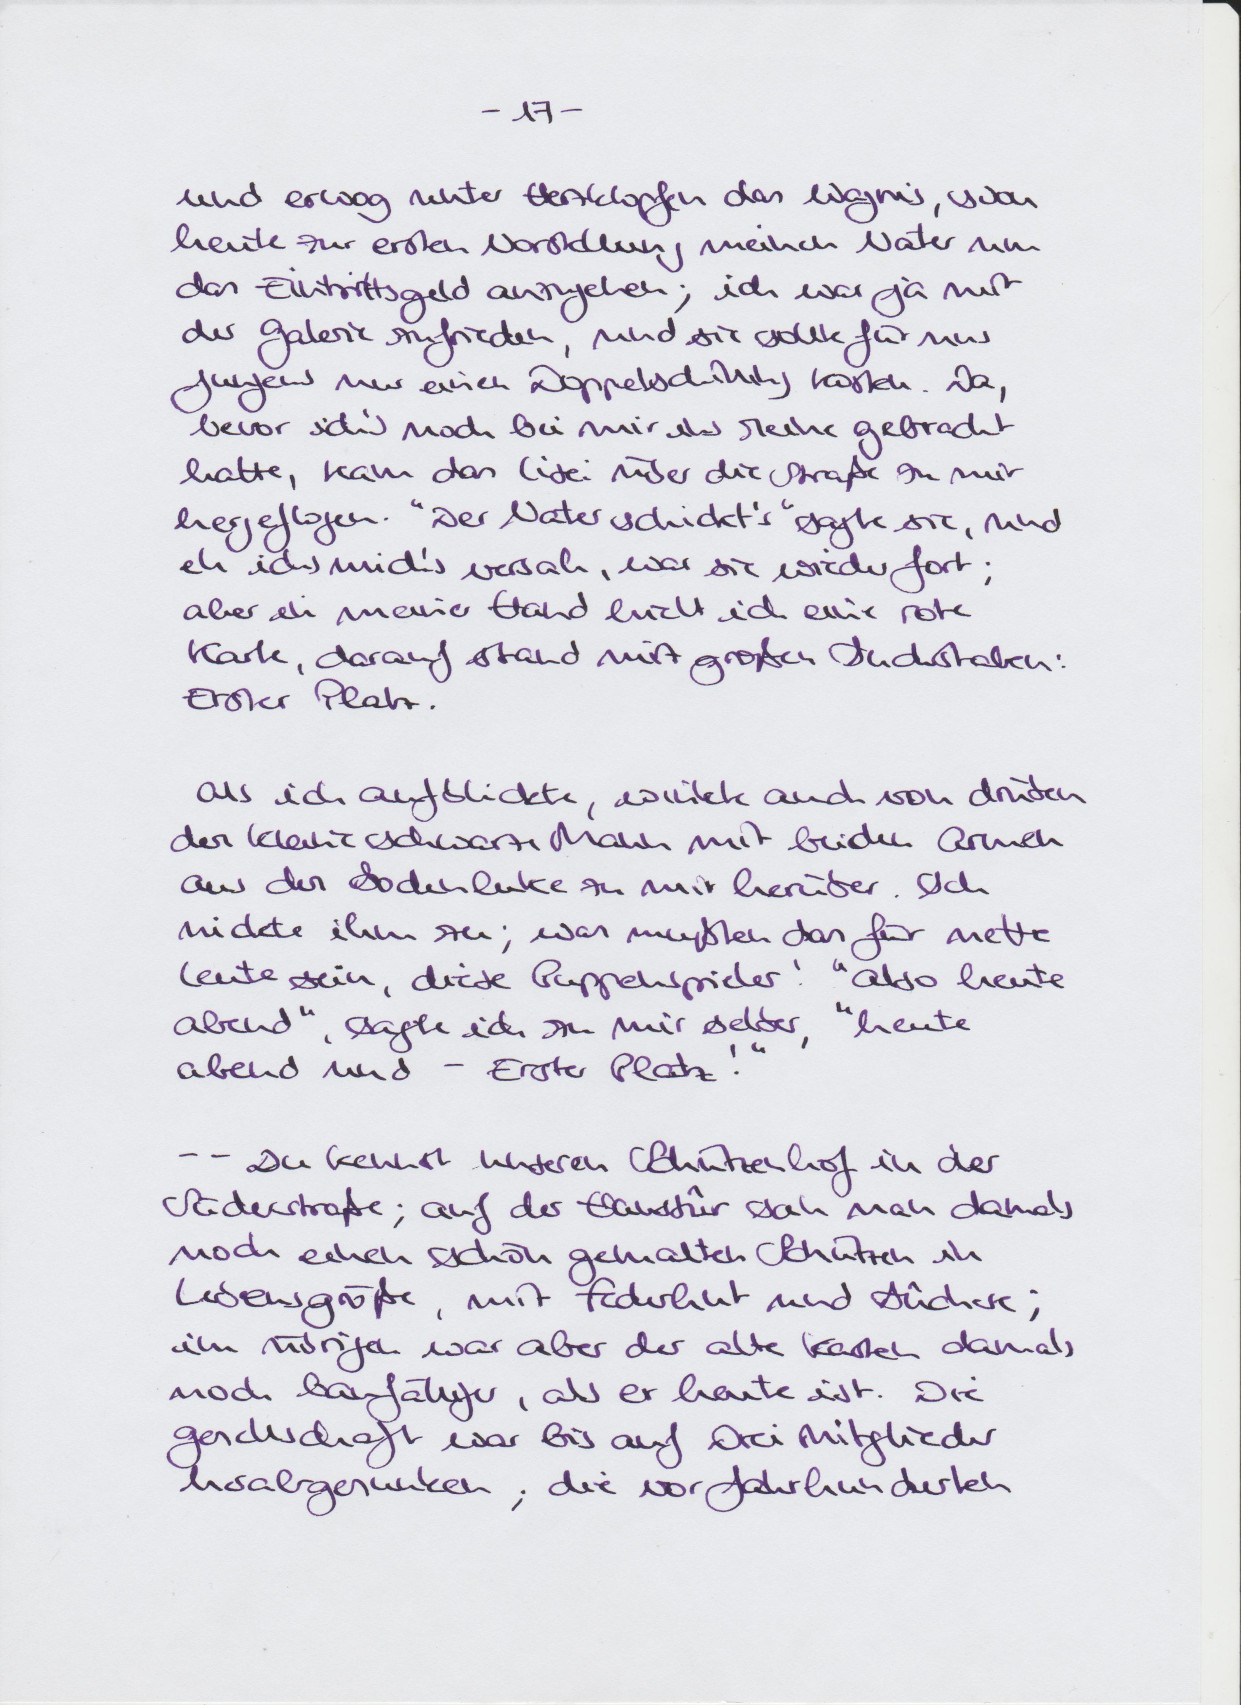 - 17 -
und erwog unter Herzklopfen das Wagnis, schon
heute zur ersten Vorstellung meinen Vater um
das Eintrittsgeld anzugehen; ich war ja mit
der Galerie zufrieden, und sie sollte für uns
Jungens nur einen Doppelschilling kosten. Da,
bevor ich's noch bei mir ins Reine gebracht
hatte, kam das Lisei über die Straße zu mir
hergeflogen. "Der Vater schickt's" sagte sie, und
eh ich's mich's versah, war sie wieder fort;
aber in meiner Hand hielt ich eine rote
Karte, darauf stand mit großen Buchstaben:
Erster Platz.
Als ich aufblickte, winkte auch von drüben
der kleine schwarze Mann mit beiden Armen
aus der Bodenluke zu mir herüber. Ich
nickte ihm zu; was mußten das für nette
Leute sein, diese Puppenspieler! "Also heute
abend", sagte ich zu mir selber, "heute
abend und - Erster Platz!"
-- Du kennst unseren Schützenhof in der
Süderstraße; auf der Haustür sah man damals
noch einen schön gemalten Schützen in
Lebensgröße, mit Federhut und Büchse;
im übrigen war aber der alte Kasten damals
noch baufälliger, als er heute ist. Die
Gesellschaft war bis auf drei Mitglieder
herabgesunken; die vor Jahrhunderten